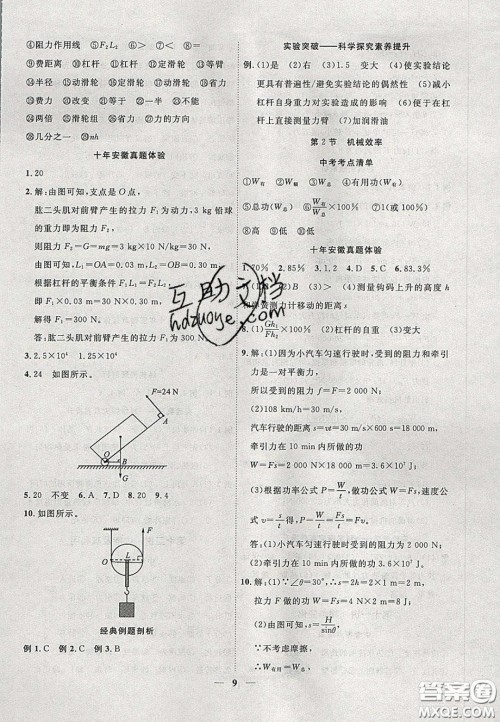 ④阻力作用线 ⑤F₂L₂ ⑥F₁L₁ ⑦省力
⑧费距离 ⑨杠杆 ⑩杠杆 ⑪等臂
⑭半径 ⑮动滑轮 ⑯定滑轮 ⑰动滑轮
⑱费力 ⑲变力 ⑳等于 ㉑一半 ㉒方向
㉔两倍 ㉕滑轮组 ㉖力 ㉗方向
㉘几分之一 ㉙nh
十年安徽真题体验
1.20
2.解:由图可知,支点是 O 点,
肱二头肌对前臂产生的拉力 F₁ 为动力,3 kg 铅球
的重力即为阻力 F₂,
则阻力 F₂=G=mg=3 kg×10 N/kg=30 N,
由图可知,L₁=OA=0.03 m,L₂=OB=0.30 m,
杠杆的平衡条件 F₁L₁=F₂L₂
即 F₁×0.03 m=30 N×0.30 m,
解得 F₁=300 N。
答:肱二头肌产生的拉力 F₁ 为 300 N。
3.2.5×10⁴ 1.25×10⁴
4.24 如图所示。
F=24 N
A
O
B
G
5.20 不变 6.A 7.D 8.20 9.4
10.如图所示。
F
O
L
经典例题剖析
例 1.C 例 2.C 例 3.B
实验突破——科学探究素养提升
例.(1)是 (2)右 (3)1.5 变大 (4)使实验结论
更具有普遍性/避免实验结论的偶然性 (5)减小
杠杆自身重力对实验造成的影响 (6)便于在杠杆
上直接测量力臂 (7)加润滑油
第 2 节 机械效率
中考考点清单
①W有 ②W额 ③W总 ④有用功(W有)
⑤总功(W总) ⑥W有/W总×100% ⑦100%
⑧高 ⑨低 ⑩低
十年安徽真题体验
1.70% 2.85% 3.1.2 4.D 5.D
测量钩码上升的高度 h
和弹簧测力计移动的距离 s
(1)Gh₁/Fh₂×100% (2)杠杆的自重 (3)变大
9.解:(1)因为小汽车匀速行驶时受到的阻力和牵引力
是一对平衡力,
所以受到的阻力 f=F=2 000 N,
(2)108 km/h=30 m/s,
汽车行驶的距离 s=vt=30 m/s×600 s=18 000 m,
牵引力在 10 min 内所做的功
W=Fs=2 000 N×18 000 m=3.6×10⁷ J;
(3)根据功率公式 P=W/t,功的公式 W=Fs,速度公
式 v=s/t,得 P=W/t=Fs/t=Fv。
答:(1)小汽车匀速行驶时受到的阻力为 2 000 N;
(2)牵引力在 10 min 内所做的功为 3.6×10⁷ J。
10.解:(1)∵∠θ=30°,
拉力 F 做的功 W=Fs=4 N×2 m=8 J;
(2)由题意可得,s=H/sinθ,
∵不考虑摩擦,
∴W有用=W总,
9
互助文档
hdzuoye.com
答案圈
MXQE.COM